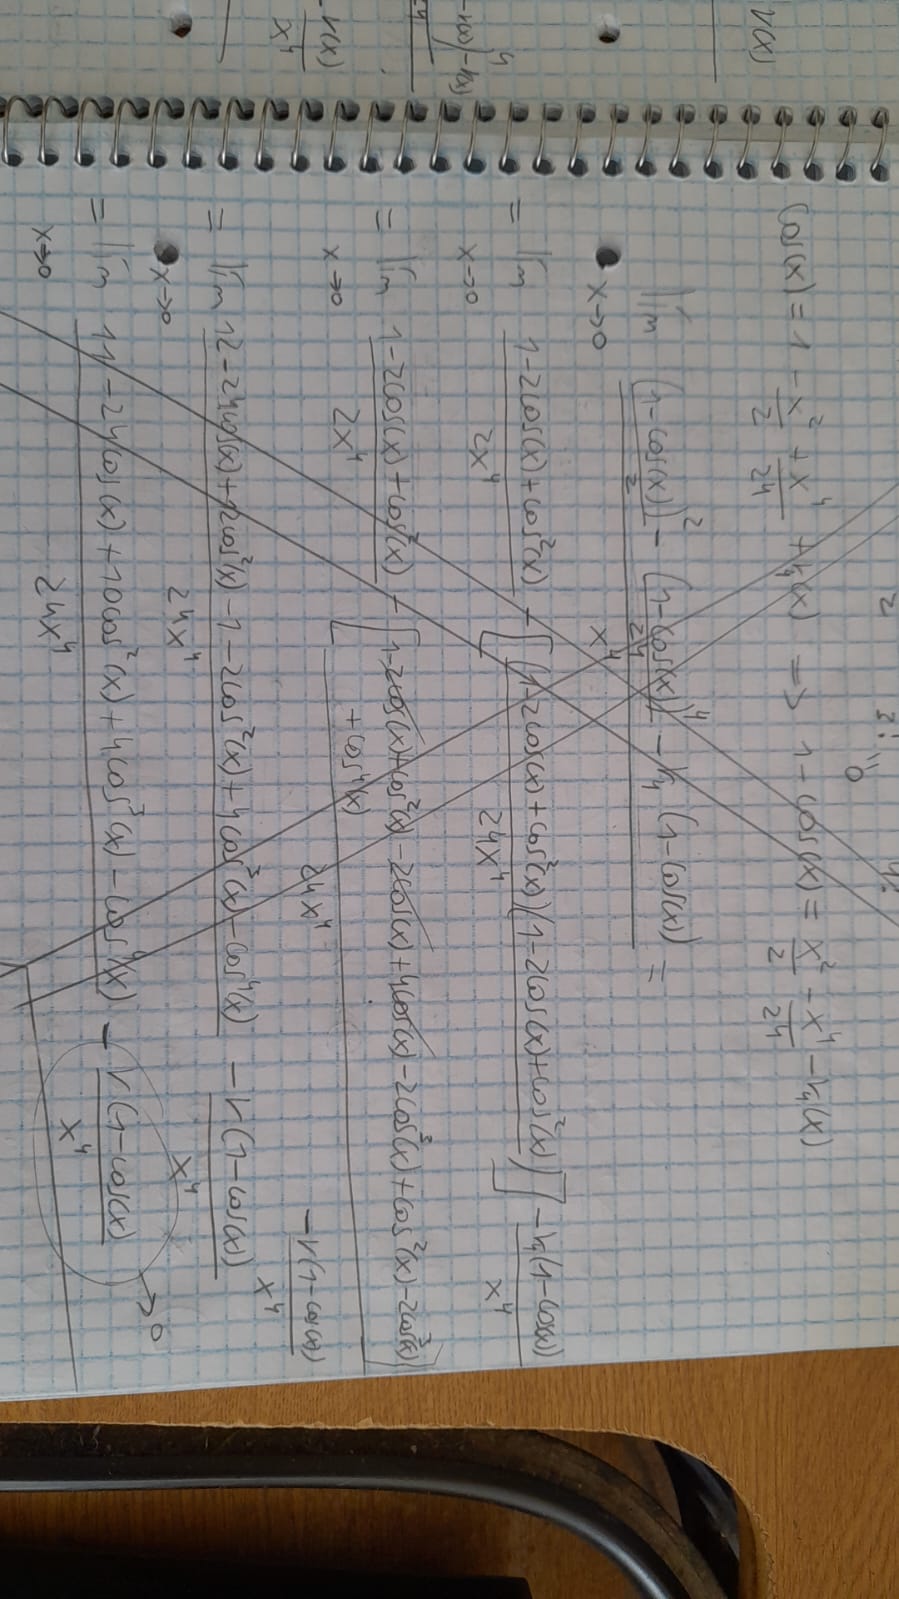 cos(x) = 1 - x²/2 + x⁴/24 + r₄(x) => 1 - cos(x) = x²/2 - x⁴/24 - r₄(x)
lim x->0 ((1-cos(x))²/2 - (1-cos(x))⁴/24 - r₄(1-cos(x)))/x⁴ =
= lim x->0 (1-2cos(x)+cos²(x))/2x⁴ - [(1-2cos(x)+cos²(x))(1-2cos(x)+cos²(x))]/24x⁴ - r₄(1-cos(x))/x⁴
= lim x->0 (1-2cos(x)+cos²(x))/2x⁴ - [1-2cos(x)+cos²(x)-2cos(x)+4cos(x)-2cos³(x)+cos²(x)-2cos³(x)
+cos⁴(x)]/24x⁴ - r(1-cos(x))/x⁴
= lim x->0 (12-24cos(x)+12cos²(x)-1-2cos²(x)+4cos³(x)-cos⁴(x))/24x⁴ - r(1-cos(x))/x⁴
= lim x->0 (11-24cos(x)+10cos²(x)+4cos³(x)-cos⁴(x))/24x⁴ - r(1-cos(x))/x⁴ -> 0